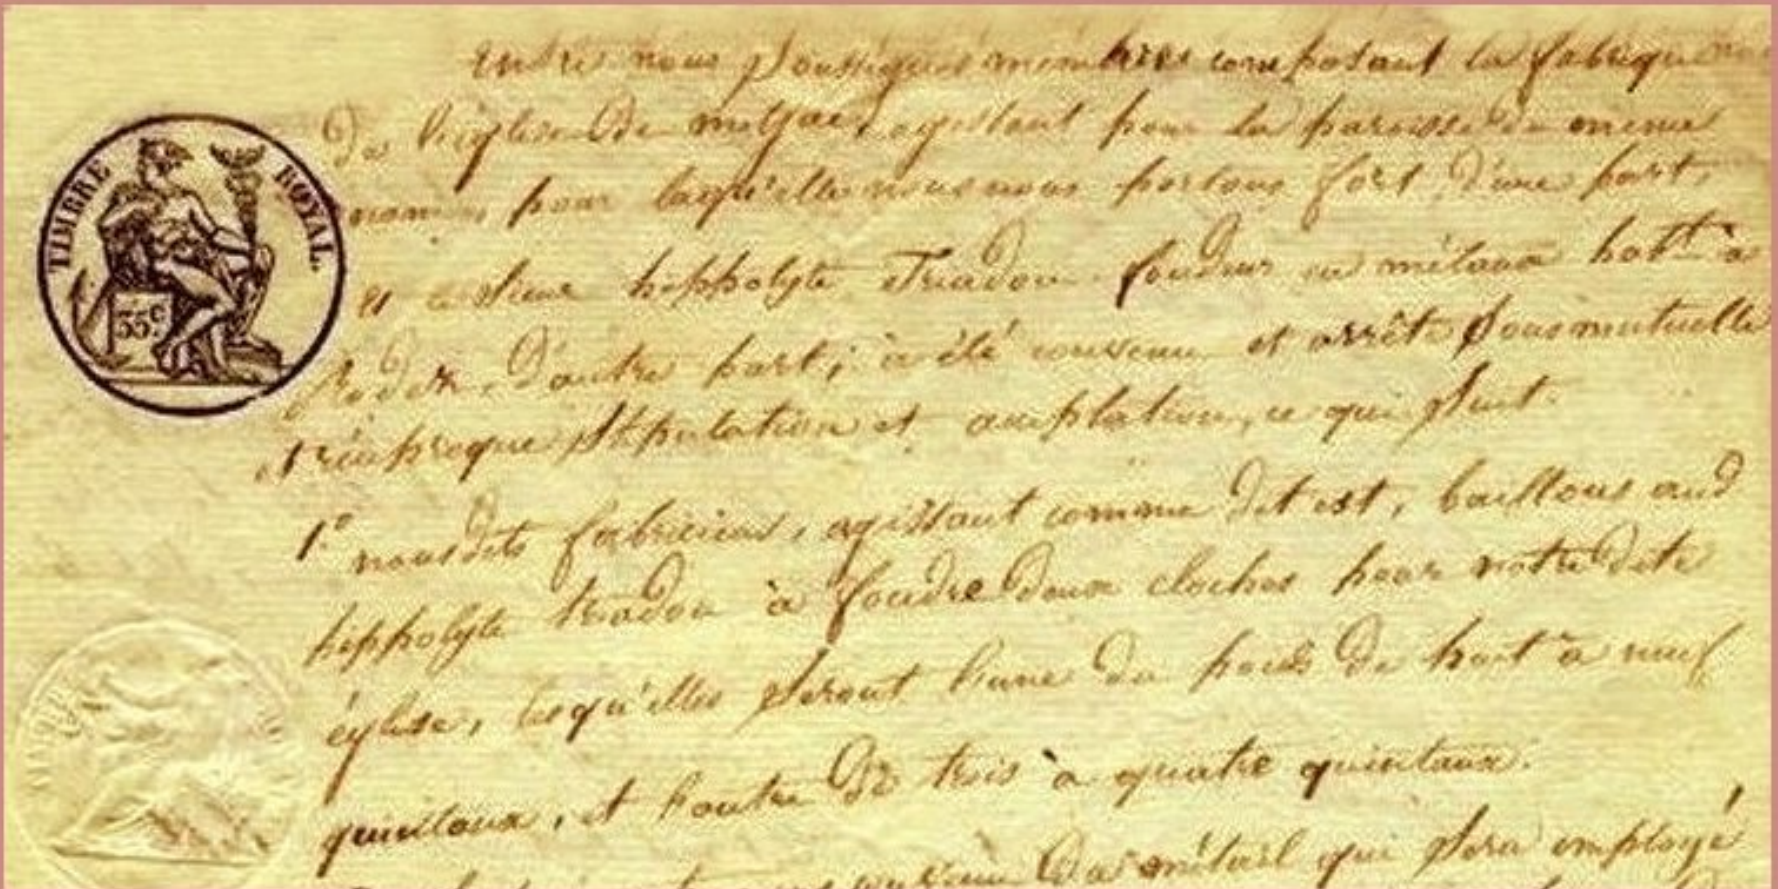 Entre nous soussignés membres composant la fabrique
de l'église de agissant pour la paroisse du meme
nom, pour laqu'elle nous nous portons fort, d'une part,
et le sieur hippolyte Triadou fondeur en métaux habt à
Rodez, d'autre part; à été convenu et arrêté sous mutuelle
et réciproque stipulation et acceptation, ce qui suit.
1.° nousdits fabriciens, agissant comme dit est, baillons aud
hippolyte triadou à fondre deux cloches pour notre dite
église, lesqu'elles seront l'une du poids de huit à neuf
quintaux, et l'autre de trois à quatre quintaux.
du métail qui sera employé
TIMBRE ROYAL.
35c.